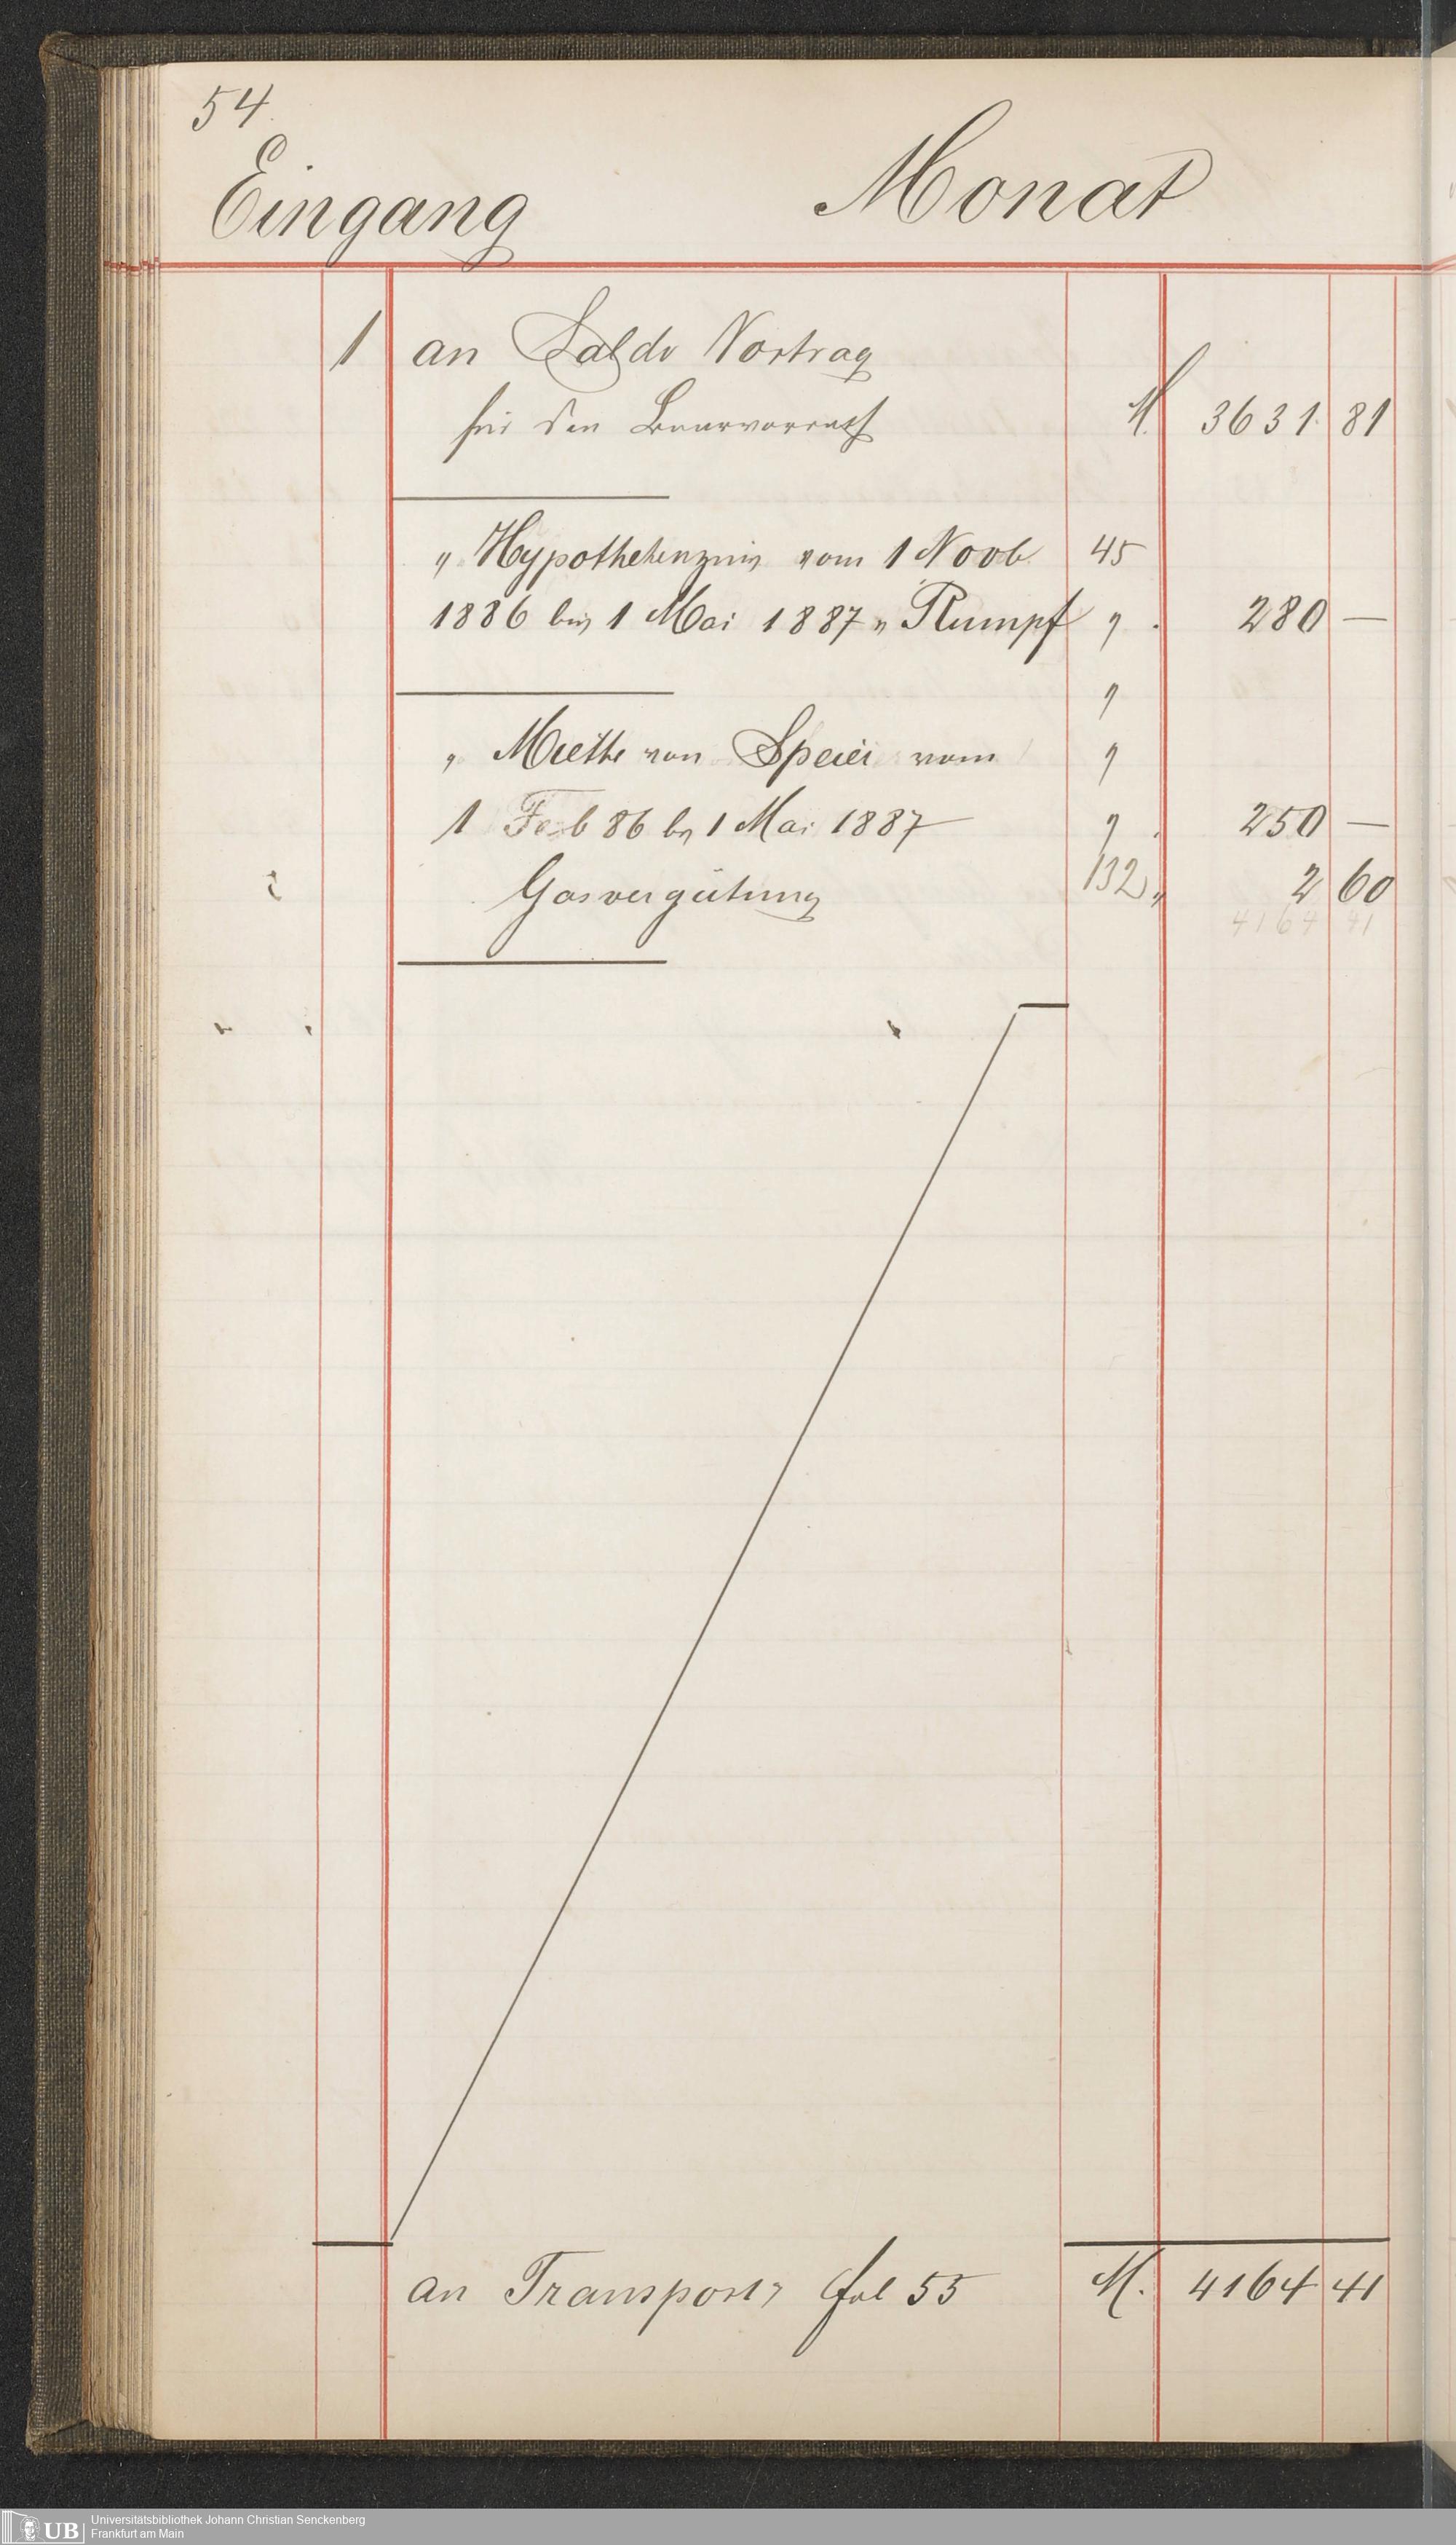 54.
Eingang Monat
1 an Saldo Vortrag
für den Baarvorrath M. 3631. 81
" Hypothekenzins vom 1 Novb. 45
1886 bis 1 Mai 1887 " Rumpf " . 280 —
"
" Miethe von Speier vom "
1 Feb 86 bis 1 Mai 1887 " . 250 —
Gasvergütung 132 " 2 60
4164 41
an Transport fol 55 M. 4164 41
Universitätsbibliothek Johann Christian Senckenberg
UB Frankfurt am Main